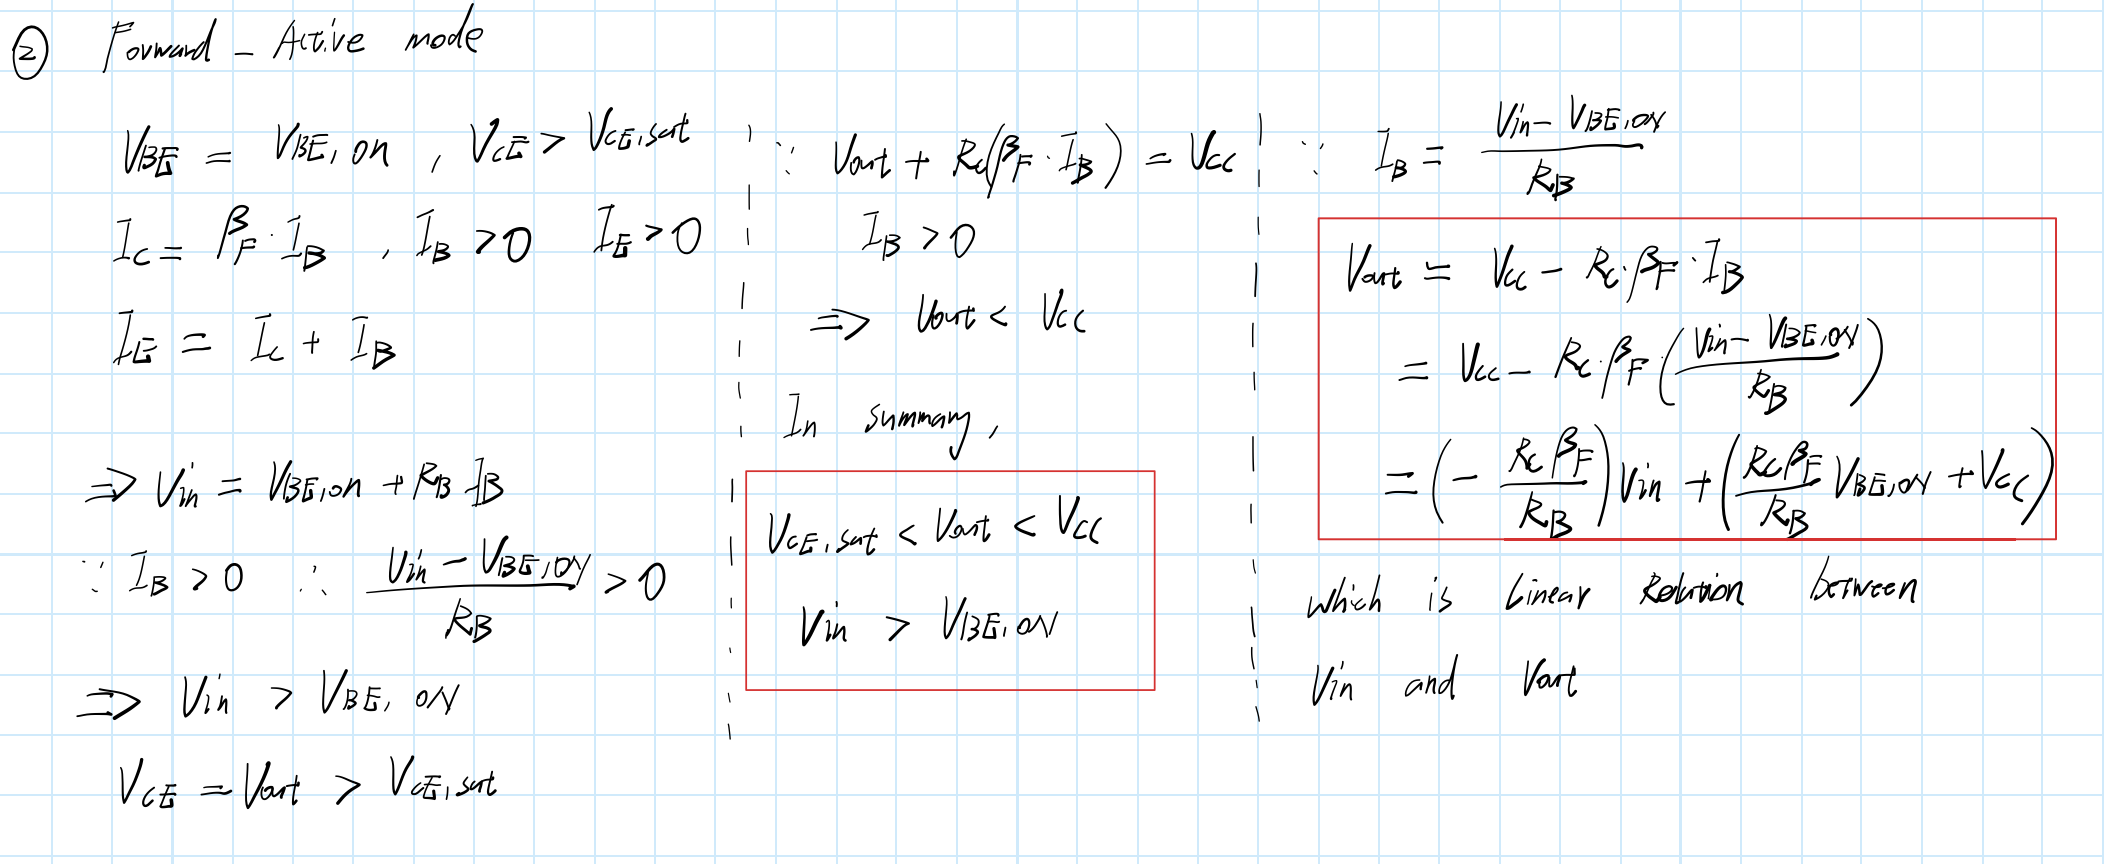 ② Forward - Active mode
V_BE = V_BE,on , V_CE > V_CE,sat
I_C = β_F · I_B , I_B > 0 I_E > 0
I_E = I_C + I_B
⇒ Vin = V_BE,on + R_B I_B
∵ I_B > 0 ∴ (Vin - V_BE,ON)/R_B > 0
⇒ Vin > V_BE,ON
V_CE = Vout > V_CE,sat
∵ Vout + R_C(β_F · I_B) = V_CC
I_B > 0
⇒ Vout < V_CC
In summary,
V_CE,sat < Vout < V_CC
Vin > V_BE,ON
∵ I_B = (Vin - V_BE,ON)/R_B
Vout = V_CC - R_C · β_F · I_B
= V_CC - R_C · β_F · ((Vin - V_BE,ON)/R_B)
= (- R_C β_F/R_B) Vin + (R_C β_F/R_B V_BE,ON + V_CC)
which is Linear Relation between
Vin and Vout